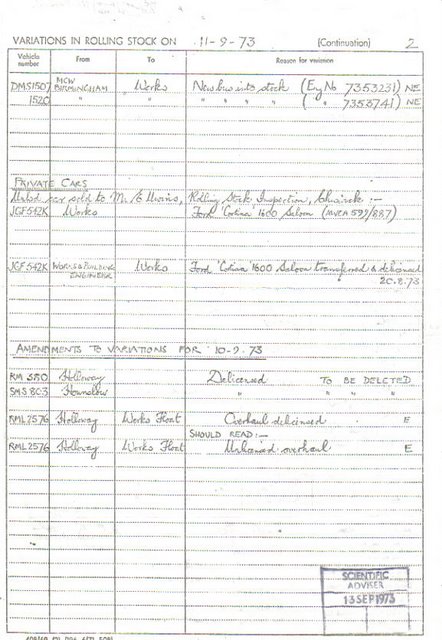 VARIATIONS IN ROLLING STOCK ON 11-9-73 (Continuation) 2
Vehicle number From To Reason for variation
DMS1507 MCW BIRMINGHAM Works New bus into stock (Eng No 7353231) NE
1520 " " " " " " ( " 7353741) NE
PRIVATE CARS
car sold to Mr. E Unwins, Rolling Stock Inspection, Chiswick :-
JGF542K Works Ford 'Cortina' 1600 Saloon (MVEA 599/887)
JGF542K WORKS & BUILDING ENGINEER Works Ford 'Cortina' 1600 Saloon transferred & delicensed
20.8.73
AMENDMENTS TO VARIATIONS FOR 10-9-73
RM 380 Holloway Delicensed TO BE DELETED
SMS 803 Hounslow " " " "
RML2576 Holloway Works Float Overhaul delicensed E
SHOULD READ :-
RML2576 Holloway Works Float Unlicensed overhaul E
SCIENTIFIC
ADVISER
13 SEP 1973